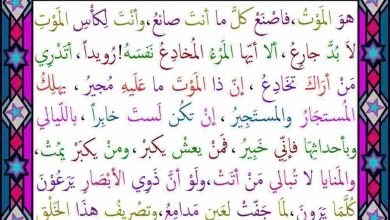 هوَ المَوْتُ،فاصْنَعْ كلَّ ما أنتَ صانِعُ،وأنْتَ لِكأْسِ المَوْتِ
لاَ بُدَّ جارِعُ ، ألا أيّها المَرْءُ المُخادِعُ نَفْسَهُ!رُويداً ، أتَدْرِي
مَنْ أرَاكَ تخَادِعُ ، إنّ ذا المَوْتَ ما عَلَيهِ مُجيرُ ، يهلِكُ
المُستجَارُ والمستَجِيرُ ، إنْ تكُن لَستَ خابِراً ، باللّيالي
وبأحداثِها فإنّي خَبِيرُ ، فَمَنْ يعْش يكبرْ ، ومنْ يكبَرْ يمُتْ،
والمَنايا لا تُبالي مَنْ أتَتْ،ولَوْ أنّ ذَوِي الأبْصَارِ يَرَعُوْنَ
كلَّمَا يرَوْنَ لِما جَفّتْ لعَينٍ مَدامِعُ،وتَصْرِيفُ هذا الخَلْقِ